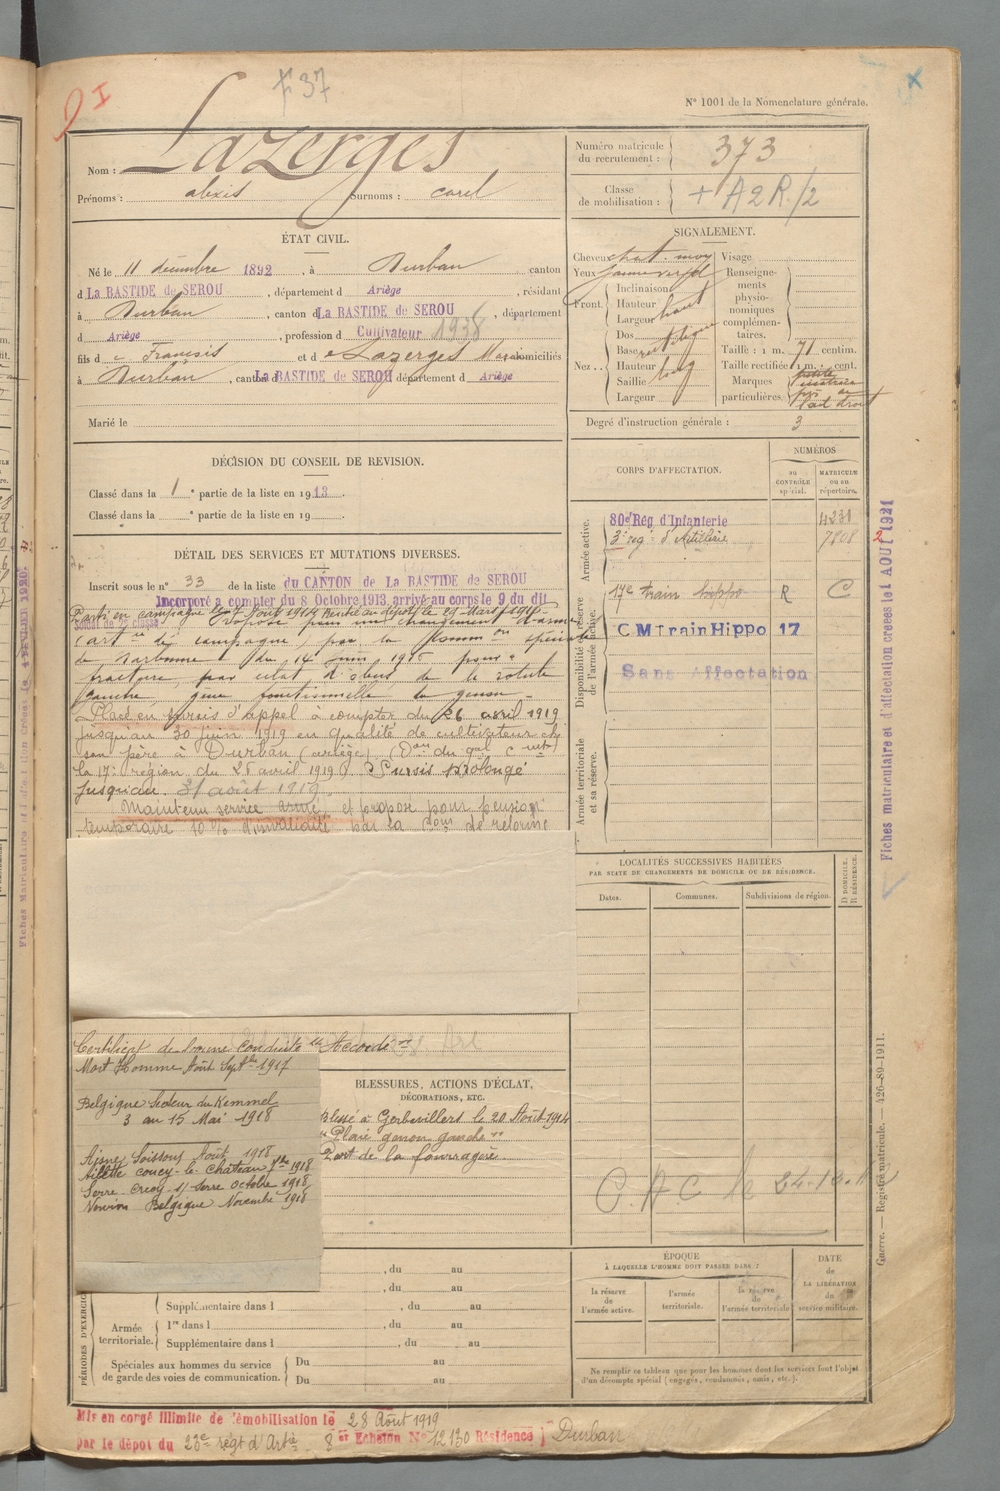 I
F 37
N° 1001 de la Nomenclature générale.
Nom : Lazerges
Prénoms : alexis Surnoms : carel
Numéro matricule du recrutement : 373
Classe de mobilisation : + A2R/2
ÉTAT CIVIL.
Né le 11 décembre 1892, à Durban canton
d La BASTIDE de SEROU, département d Ariège, résidant
à Durban, canton d La BASTIDE de SEROU, département
d Ariège, profession d Cultivateur 1938
fils de François et de Lazerges Marie domiciliés
à Durban, canton d La BASTIDE de SEROU département d Ariège
Marié le
SIGNALEMENT.
Cheveux chat. moy
Yeux jaune verd
Front. Inclinaison
Hauteur haut
Largeur
Nez . . Dos rectiligne
Base
Hauteur long
Saillie
Largeur
Visage
Renseignements physionomiques complémentaires.
Taille : 1 m. 71 centim.
Taille rectifiée : 1 m. cent.
Marques particulières.
Degré d'instruction générale : 3
DÉCISION DU CONSEIL DE REVISION.
Classé dans la 1e partie de la liste en 1913.
Classé dans la e partie de la liste en 19 .
DÉTAIL DES SERVICES ET MUTATIONS DIVERSES.
Inscrit sous le n° 33 de la liste du CANTON de La BASTIDE de SEROU
Incorporé a compter du 8 Octobre 1913, arrivé au corps le 9 du dit
Soldat de 2e classe.
Parti en campagne le 7 Août 1914 Rentré au dépôt le 29 Mars 1915.
Proposé pour un changement d'arme
(artie de campagne, par la Common spéciale
de Narbonne du 14 juin 1915 pour "
fracture par éclat d'obus de la rotule
gauche, gêne fonctionnelle du genou.
Placé en sursis d'appel à compter du 26 avril 1919
jusqu'au 30 juin 1919 en qualité de cultivateur chez
son père à Durban (ariège) (Don du gal Ct
la 17e région du 25 avril 1919) Sursis prolongé
jusqu'au 31 août 1919.
Maintenu service armé et proposé pour pension
temporaire 10% d'invalidité par la Com de réforme
Certificat de bonne conduite "Accordé"
Mort Homme Août Septbre 1917
Belgique Secteur du Kemmel
3 au 15 Mai 1918
Aisne Soissons Août 1918
Ailette Coucy-le-Château 7bre 1918
Serre Crécy s/ Serre Octobre 1918
Vervins Belgique Novembre 1918
BLESSURES, ACTIONS D'ÉCLAT, DÉCORATIONS, ETC.
Blessé à Gerbevillers le 20 Août 1914
"Plaie genou gauche"
Port de la fourragère
CORPS D'AFFECTATION.
NUMÉROS
au CONTRÔLE spécial.
MATRICULE ou au répertoire.
Armée active.
80e Rég. d'Infanterie 4231
3e rég t d'Artillerie 7808
Disponibilité et réserve de l'armée active.
17e train hippo R C
C M Train Hippo 17
Sans Affectation
Armée territoriale et sa réserve.
LOCALITÉS SUCCESSIVES HABITÉES
PAR SUITE DE CHANGEMENTS DE DOMICILE OU DE RÉSIDENCE.
Dates.
Communes.
Subdivisions de région.
D DOMICILE. R RÉSIDENCE.
C. A. C. le
ÉPOQUE
À LAQUELLE L'HOMME DOIT PASSER DANS :
la réserve de l'armée active.
l'armée territoriale.
la réserve de l'armée territoriale
DATE de LA LIBÉRATION du service militaire.
Ne remplir ce tableau que pour les hommes dont les services font l'objet
d'un décompte spécial (engagés, condamnés, omis, etc.).
PÉRIODES D'EXERCICES
, du au
, du au
Supplémentaire dans l , du au
Armée territoriale. 1re dans l , du au
Supplémentaire dans l , du au
Spéciales aux hommes du service de garde des voies de communication. Du au
Du au
Mis en congé illimité de démobilisation le 28 Août 1919
par le dépôt du 23e régt d'Artie 8 er Echelon N° 12130 Résidence Durban
Fiches matriculaire et d'affectation créées le 1 AOUT 1921
Guerre. — Registre matricule. — 426-89-1911.